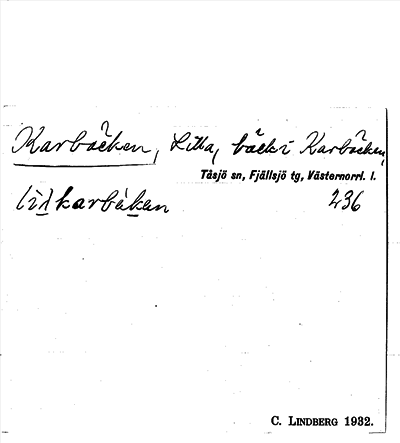 Karbäcken, Litla, bäck i Karbäcken,
Tåsjö sn, Fjällsjö tg, Västernorrl. l.
236
C. LINDBERG 1932.